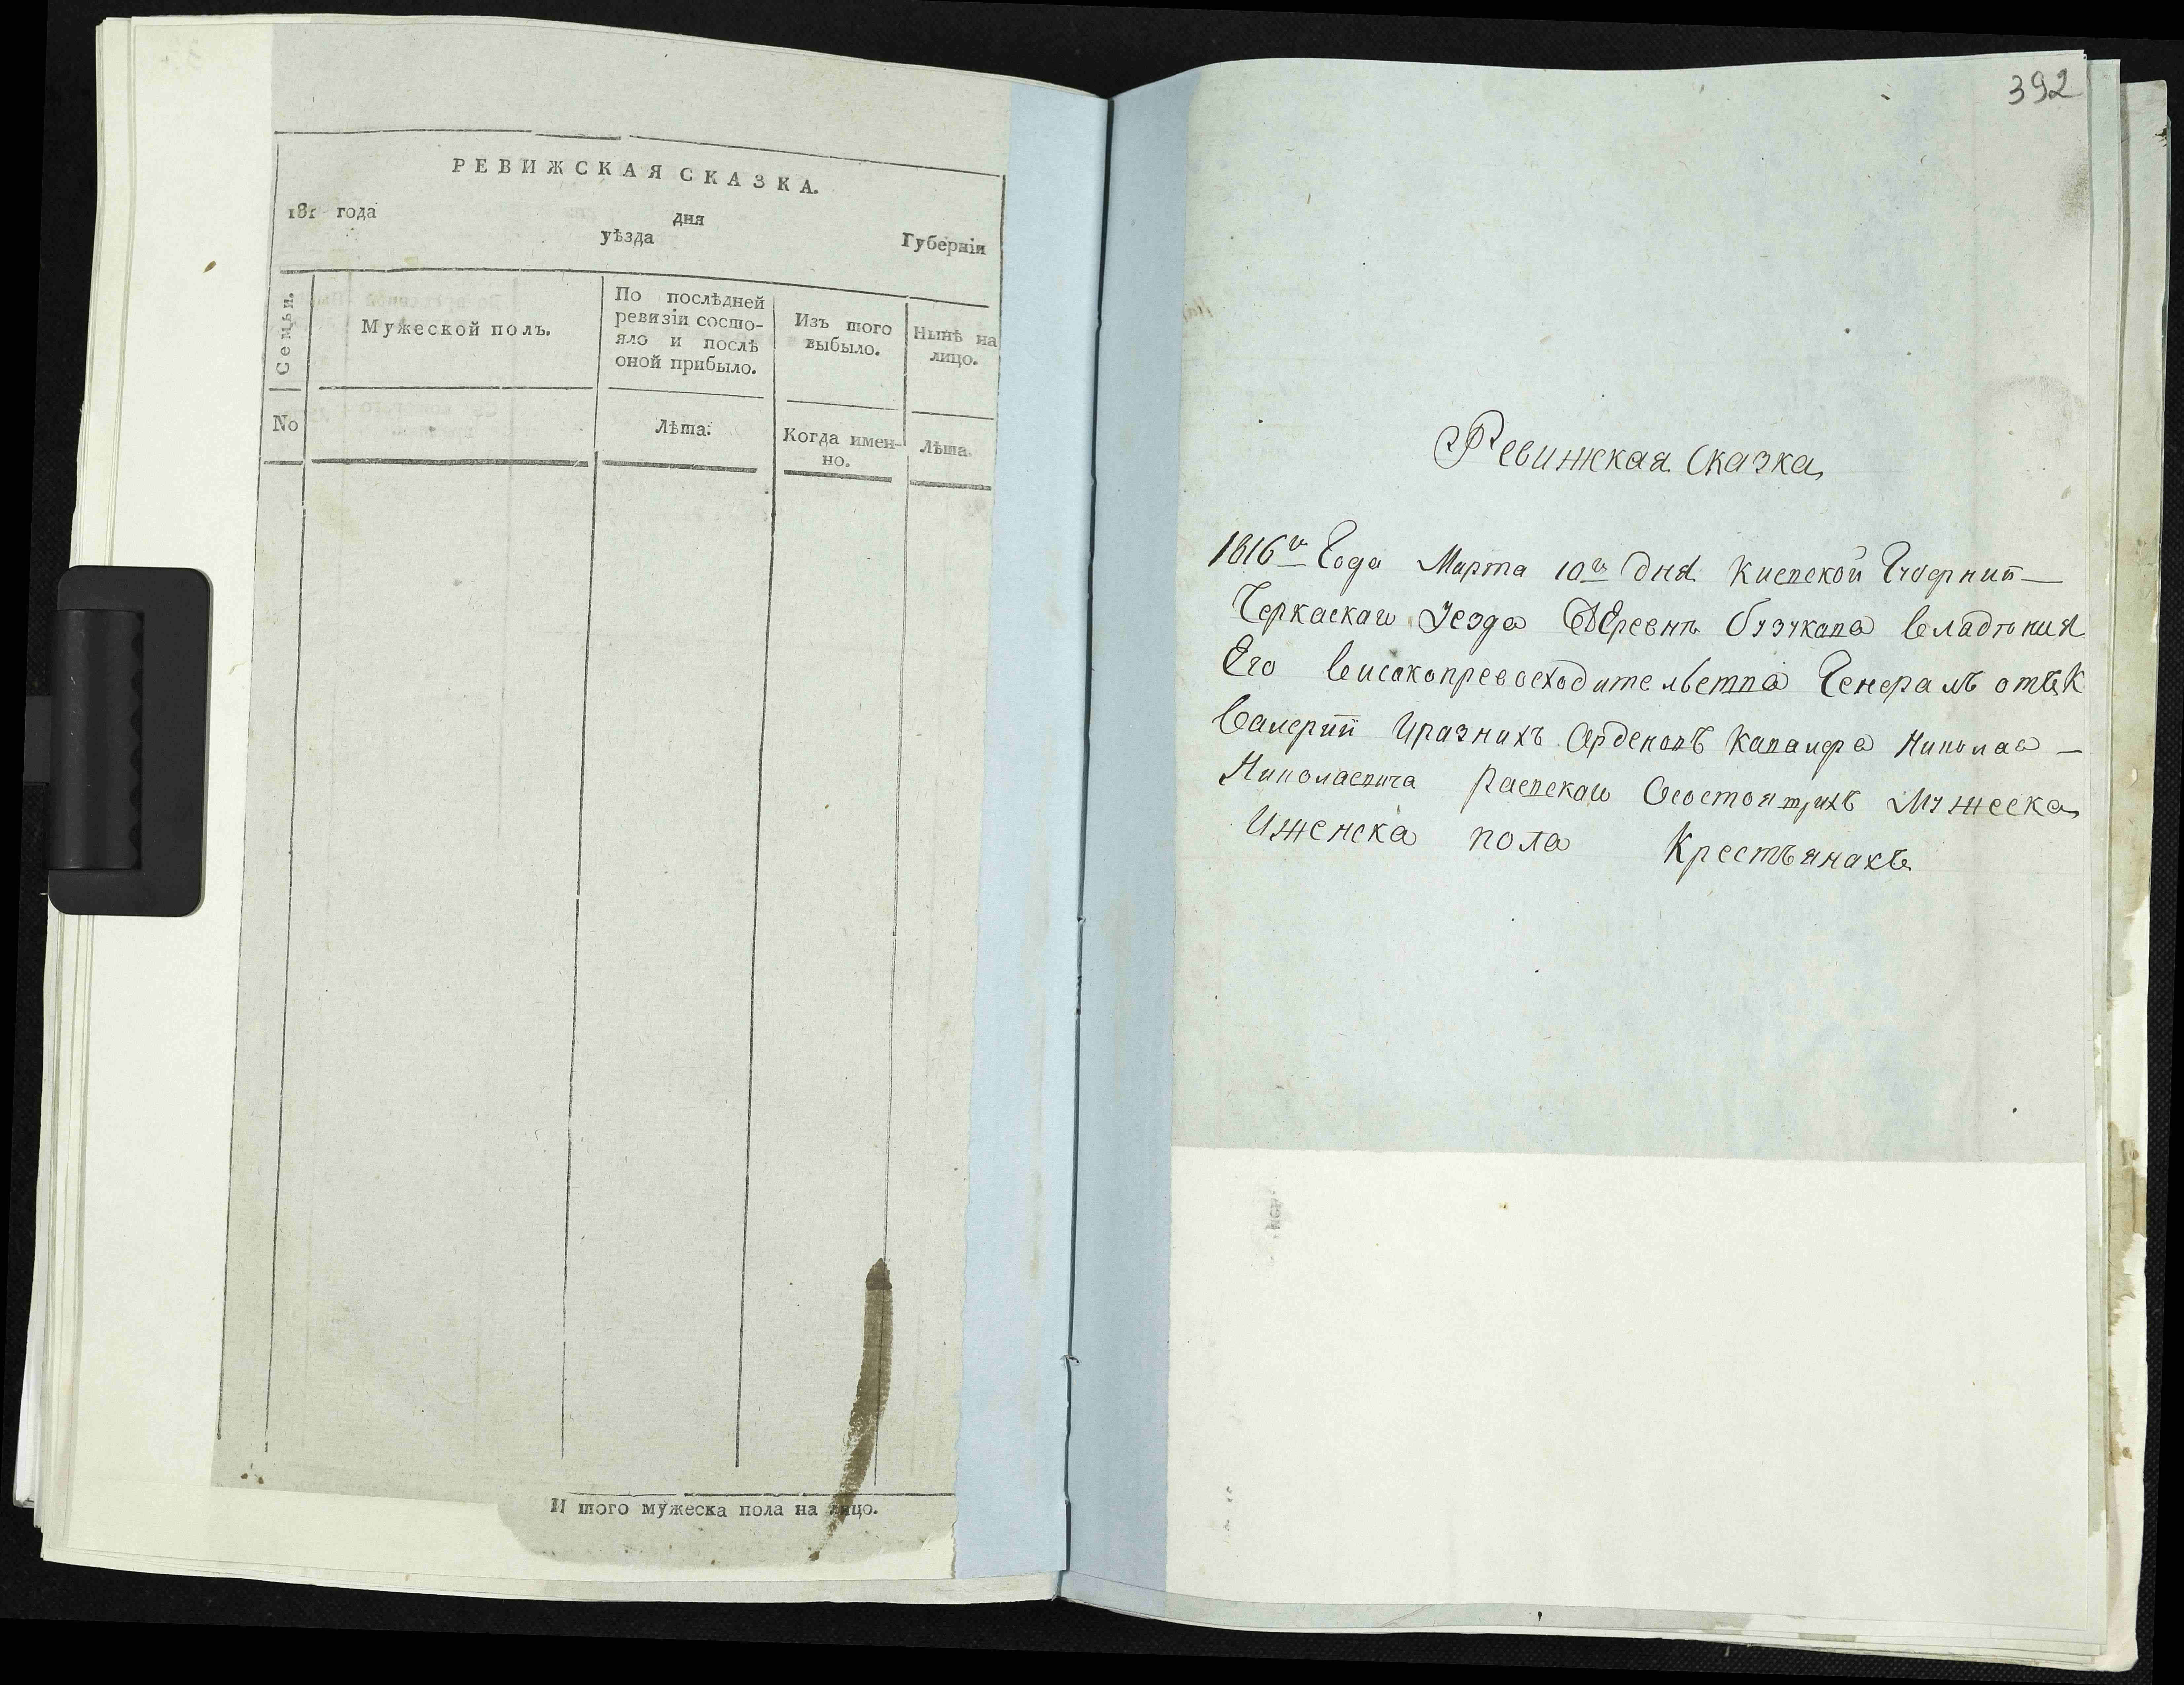 РЕВИЖСКАЯ СКАЗКА.
181 года дня
уѣзда Губерніи
Семьи.
Мужеской полъ.
По послѣдней
ревизіи состо-
яло и послѣ
оной прибыло.
Изъ того
выбыло.
Нынѣ на
лицо.
No
Лѣта.
Когда имен-
но.
Лѣта.
И того мужеска пола на лицо.
392
Ревижская Сказка
1816го Года Марта 10го дня Киевской Губернии
Черкаскаго Уезда Деревнѣ Бузукова владѣния
Его високопревосходительства Генералъ отъ К
валерии Иразнихъ Орденовъ Кавалера Николая
Николаевича Раевскаго Осостоящихъ Мужеска
Иженска пола Крестьянахъ